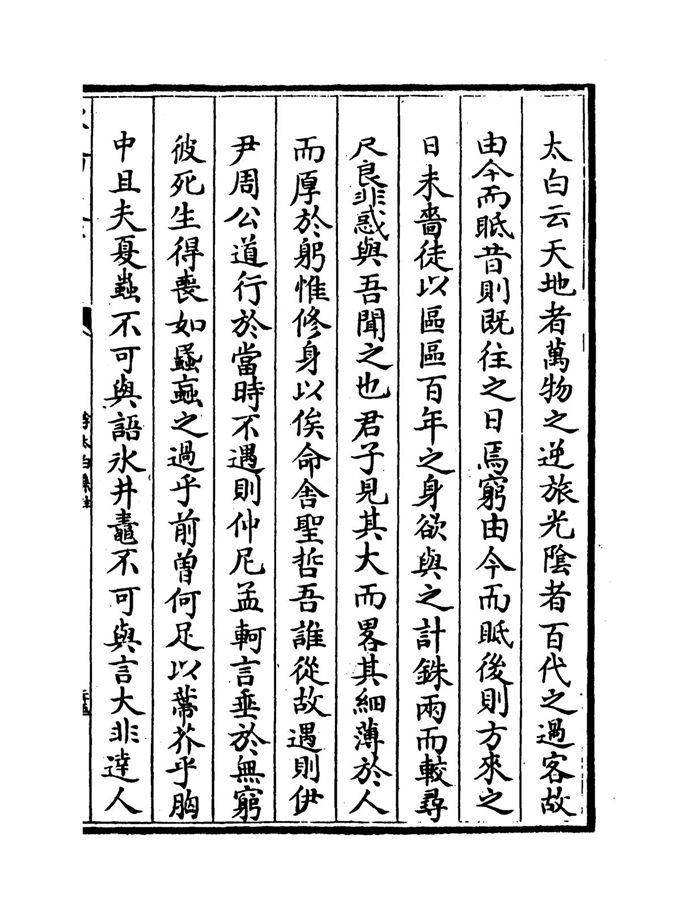 太白云天地者萬物之逆旅光陰者百代之過客故
由今而眡昔則既往之日焉窮由今而眡後則方來之
日未嗇徒以區區百年之身欲與之計銖兩而較尋
尺良非惑與吾聞之也君子見其大而畧其細薄於人
而厚於躬惟修身以俟命舍聖哲吾誰從故遇則伊
尹周公道行於當時不遇則仲尼孟軻言垂於無窮
彼死生得喪如蟁䖟之過乎前曽何足以蔕芥乎胸
中且夫夏蟲不可與語冰井鼃不可與言大非達人
李太白集注